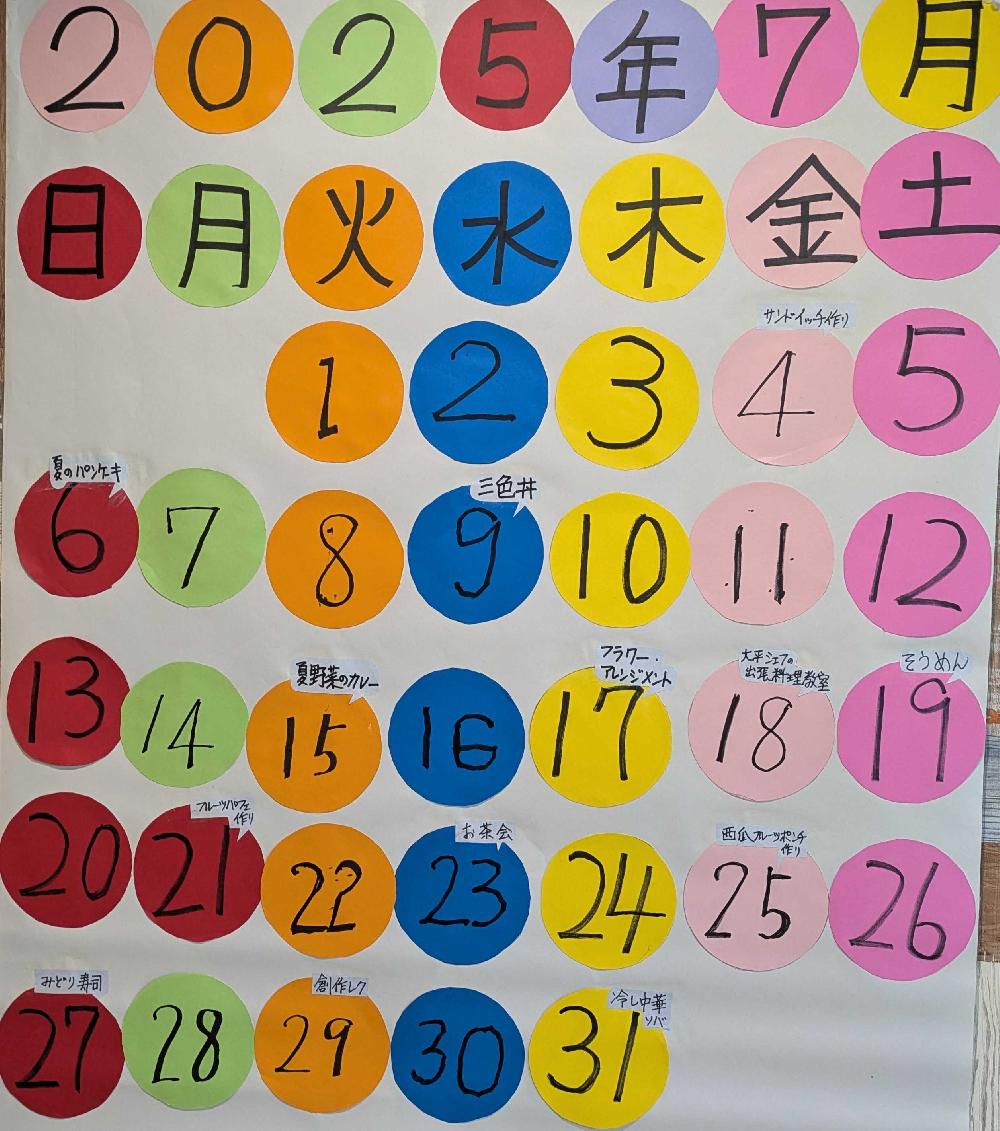 2025年7月
日月火水木金土
サンドイッチ作り
1 2 3 4 5
夏のパンケキ
三色丼
6 7 8 9 10 11 12
夏野菜のカレー
フラワー・
アレンジメント
大平シェフの
出張料理教室
そうめん
13 14 15 16 17 18 19
フルーツパフェ
作り
お茶会
西瓜フルーツポンチ
作り
20 21 22 23 24 25 26
みどり寿司
創作レク
冷し中華
ソバ
27 28 29 30 31